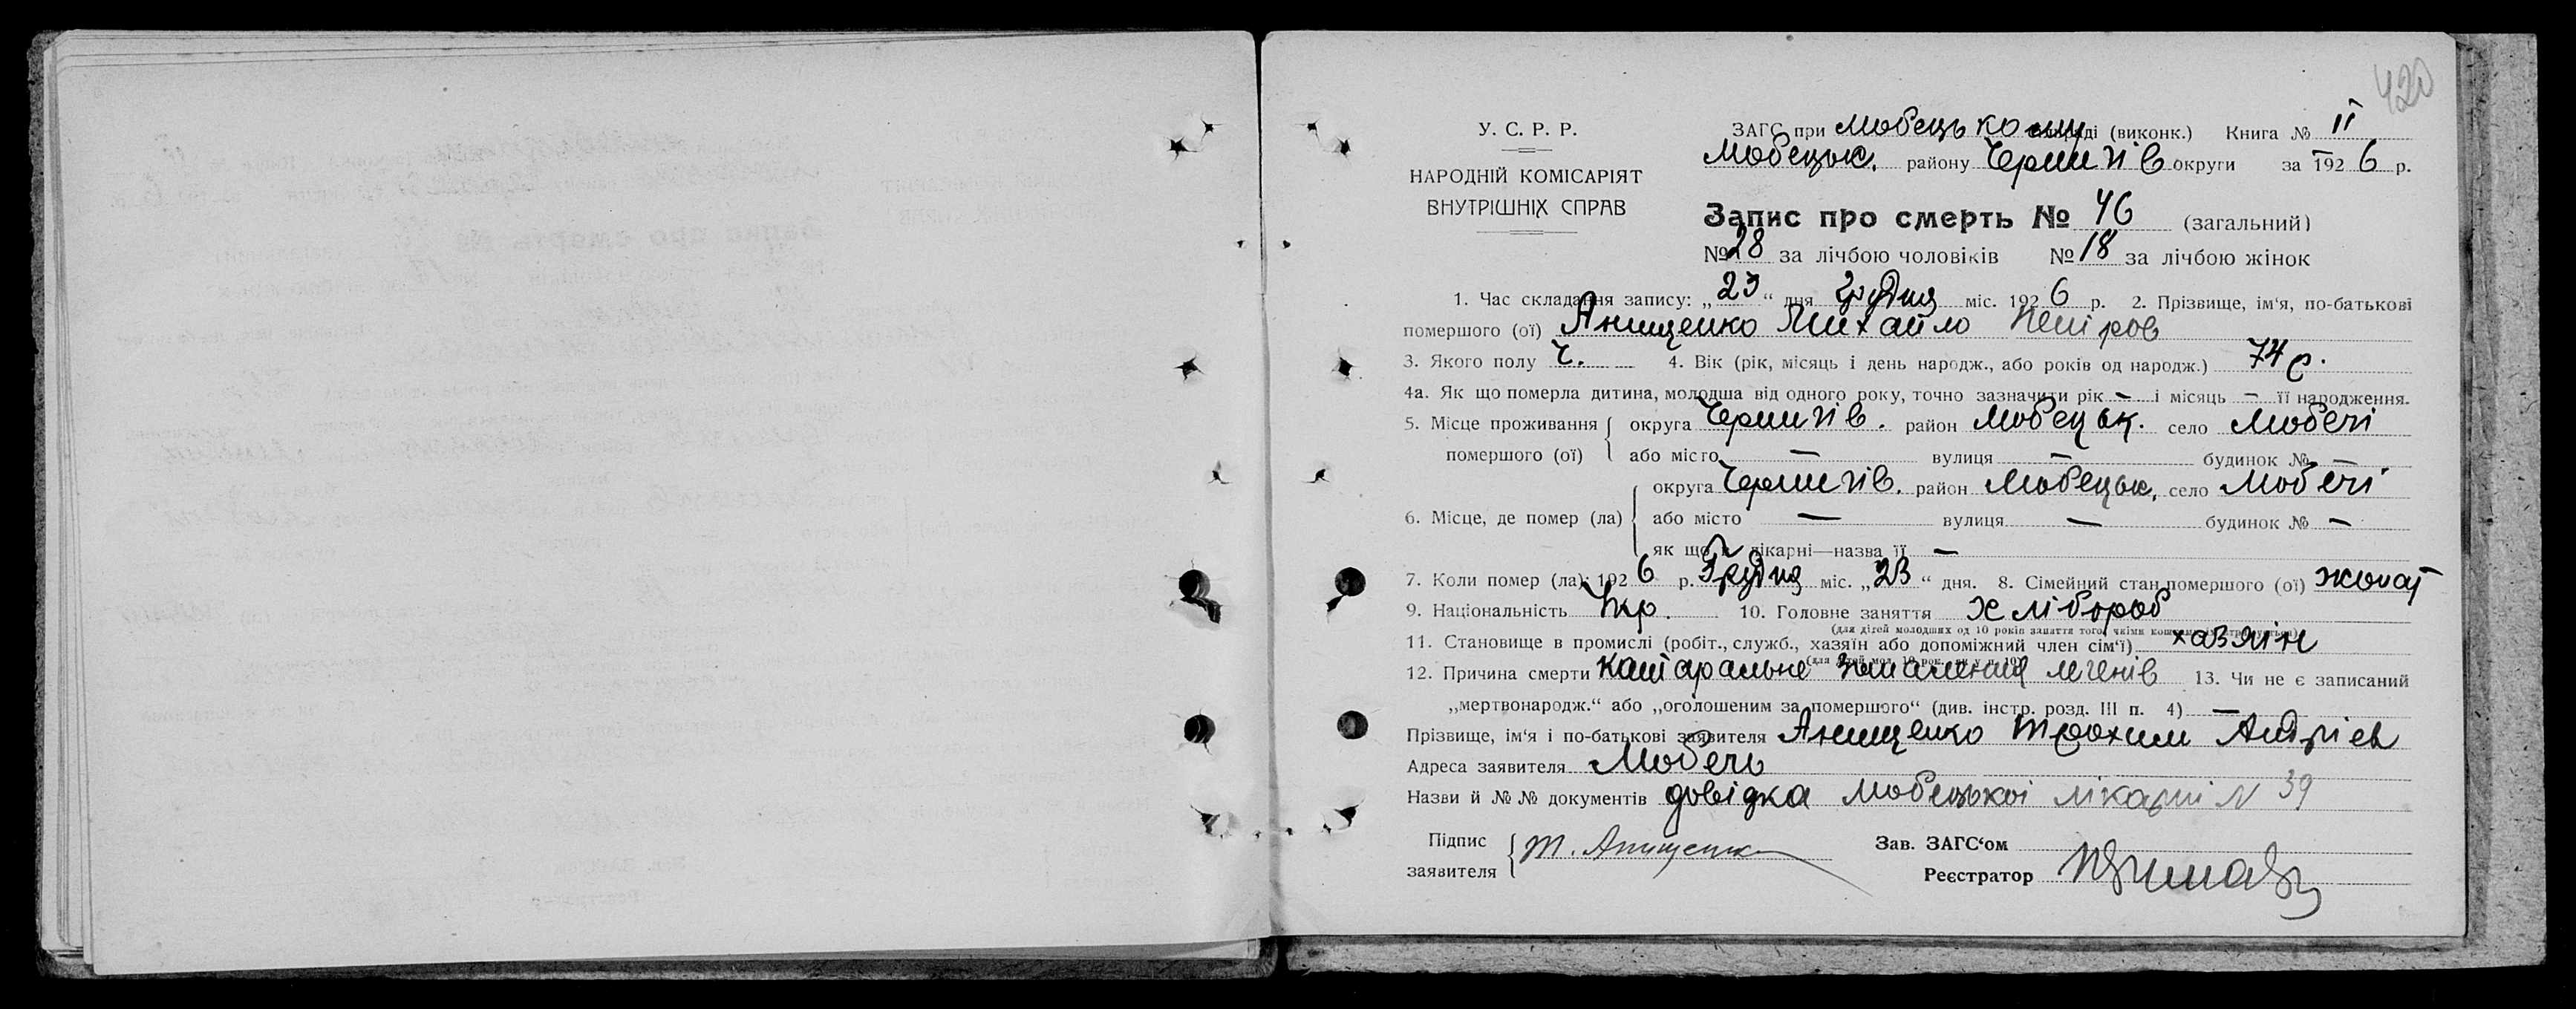 420
У. С. Р. Р.
НАРОДНІЙ КОМІСАРІЯТ
ВНУТРІШНІХ СПРАВ
ЗАГС при Любецькому раді (виконк.) Книга № II
Любецьк. району Чернигів округи за 1926 р.
Запис про смерть № 46 (загальний)
№ 28 за лічбою чоловіків № 18 за лічбою жінок
1. Час складання запису: „23“ дня Грудня міс. 1926 р. 2. Прізвище, ім'я, по-батькові
помершого (ої) Анищенко Михайло Петров
3. Якого полу ч. 4. Вік (рік, місяць і день народж., або років од народж.) 74 р.
4а. Як що померла дитина, молодша від одного року, точно зазначити рік — і місяць — її народження.
5. Місце проживання округа Чернигів. район Любецьк. село Любечі
помершого (ої) або місто — вулиця — будинок № —
округа Чернигів. район Любецьк. село Любечі
6. Місце, де помер (ла) або місто — вулиця — будинок № —
як що в лікарні—назва її —
7. Коли помер (ла): 1926 р. Грудня міс. „23“ дня. 8. Сімейний стан помершого (ої) жонат
9. Національність Укр. 10. Головне заняття хлібороб
(для дітей молодших од 10 років заняття того,
11. Становище в промислі (робіт., служб., хазяїн або допоміжний член сім'ї) хазяін
12. Причина смерти катаральне запаления легенів 13. Чи не є записаний
„мертвонародж.“ або „оголошеним за помершого“ (див. інстр. розд. III п. 4) —
Прізвище, ім'я і по-батькові заявителя Анищенко Трохим Андріев
Адреса заявителя Любечь
Назви й №№ документів довідка Любецької лікарні N 39
Підпис
заявителя Т. Анищенко
Зав. ЗАГС'ом
Реєстратор